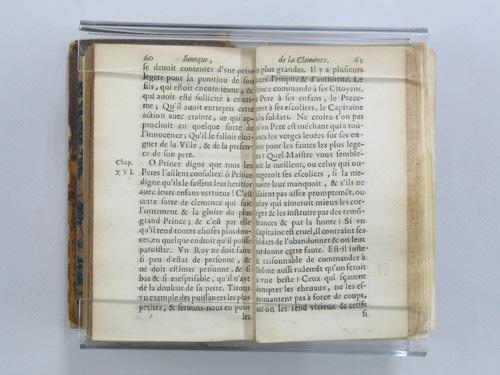 60 Seneque,
se deuoit contenter d'vne peine
legere pour la punition de son
fils, qui estoit encore ieune, &
qui auoit esté sollicité à ce cri-
me; Qu'il auoit entrepris cette
action auec crainte, ce qui ap-
prochoit en quelque sorte de
l'innocence; Qu'il le falloit éloi-
gner de la Ville, & de la presen-
ce de son pere.
Chap. XVI.
O Prince digne que tous les
Peres l'aillent consulter! ô Prince
digne qu'ils le fassent leur heritier
auec leurs enfans vertueux! C'est
cette sorte de clemence qui fait
l'ornement & la gloire du plus
grand Prince; & c'est par elle
qu'il rend toutes choses plus dou-
ces, en quelque endroit qu'il puisse
Vn Roy ne doit faire
si peu d'estat de personne, &
ne doit estimer personne, & si
bas & si mesprisable, qu'il n'ayt
de la douleur de sa perte. Tirons
vn exemple des puissances les plus
petites, & seruons-nous en pour
les
de la Clemence. 61
plus grandes. Il y a plusieurs
d'empire & d'authorité. Le
Prince commande à ses Citoyens,
Pere à ses enfans, le Prece-
à ses escoliers, le Capitaine
ses soldats. Ne croira-t'on pas
qu'vn Pere est méchant qui a tou-
les verges leuées sur ses en-
pour les fautes les plus lege-
Quel Maistre vous semble-
le meilleur, ou celuy qui
ses escoliers, si la me-
leur manquoit, & s'ils ne
pas assez promptemēt, ou
celuy qui aimeroit mieux les cor-
& les instruire par des remōs-
& par la honte? Si vn
Capitaine est cruel, il contraint ses
soldats de l'abandonner & on leur
cette faute. Est-il iuste
& raisonnable de commander à
aussi rudemēt qu'on feroit
à vne beste? Ceux qui sçauent
dompter les cheuaux, ne les es-
pouuantent pas à force de coups,
on les rend vicieux & retifs
si